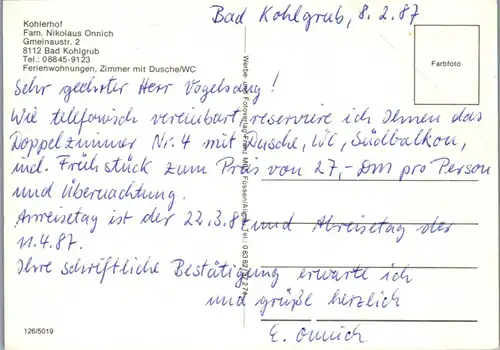 Kohlerhof
Fam. Nikolaus Onnich
Gmeinaustr. 2
8112 Bad Kohlgrub
Tel.: 08845-9123
Ferienwohnungen, Zimmer mit Dusche/WC
Bad Kohlgrub, 8.2.87
Farbfoto
Sehr geehrter Herr Vogelsang!
Wie telefonisch vereinbart reserviere ich Ihnen das
Doppelzimmer Nr. 4 mit Dusche, WC, Südbalkon,
incl. Frühstück zum Preis von 27,- DM pro Person
und Übernachtung.
Anreisetag ist der 22.3.87 und Abreisetag der
11.4.87.
Ihre schriftliche Bestätigung erwarte ich
und grüße herzlich
E. Onnich
Werbe- und Fotoverlag Franz Füssen/Allgäu Tel. 0 83 62/ 274
126/5019